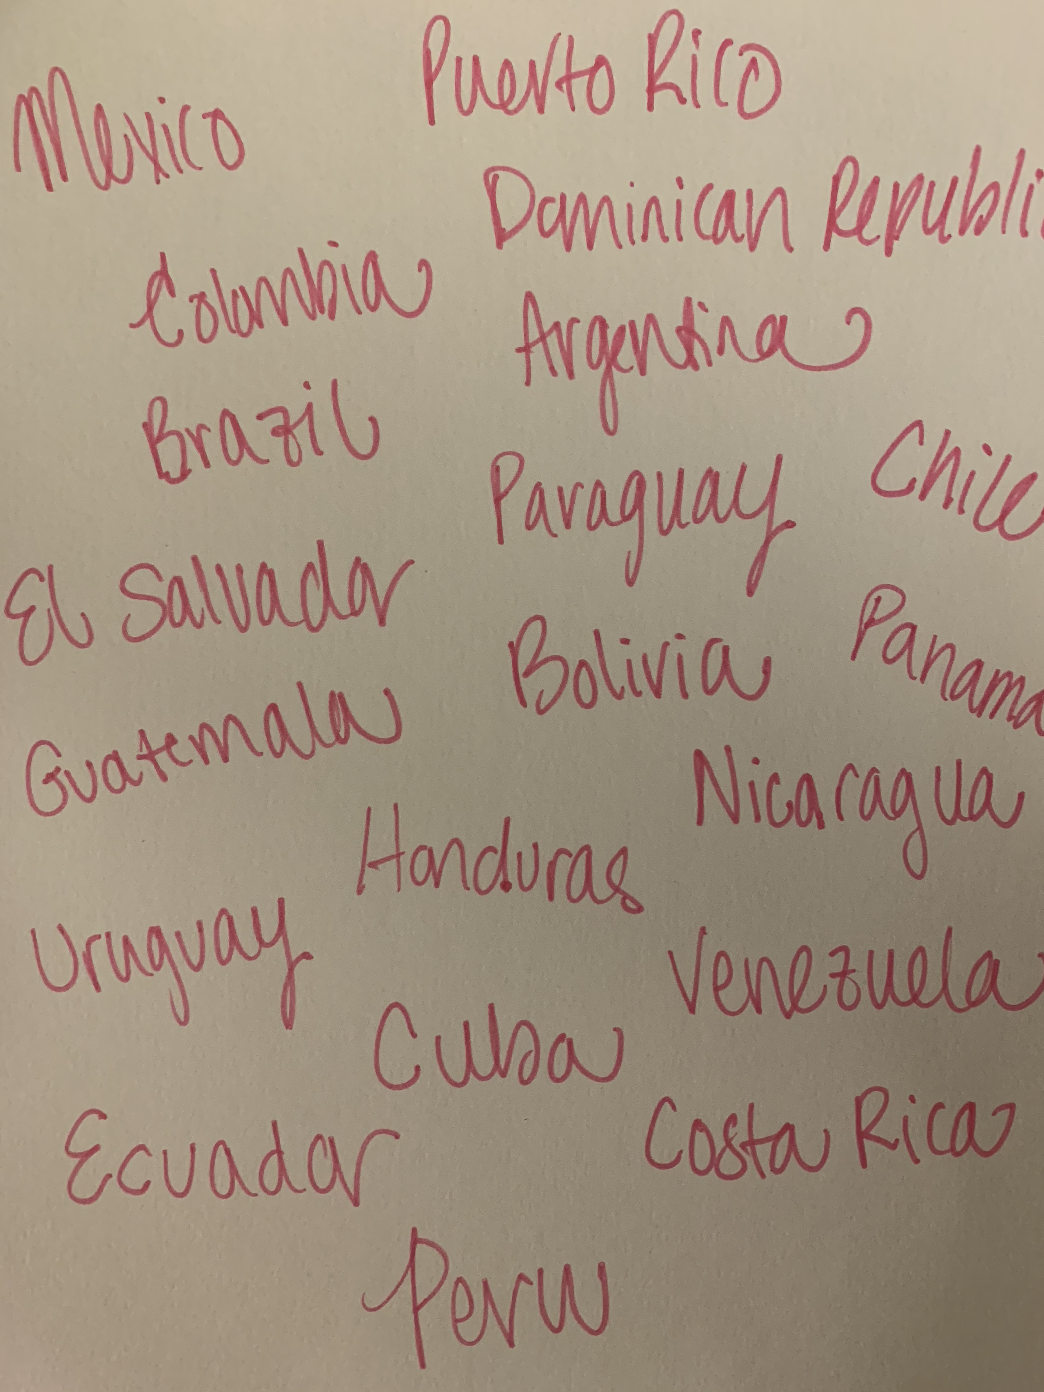 Puerto Rico
Mexico
Dominican Republi
Colombia
Argentina
Brazil
Chile
Paraguay
El Salvador
Bolivia
Panama
Guatemala
Nicaragua
Honduras
Uruguay
Venezuela
Cuba
Costa Rica
Ecuador
Peru